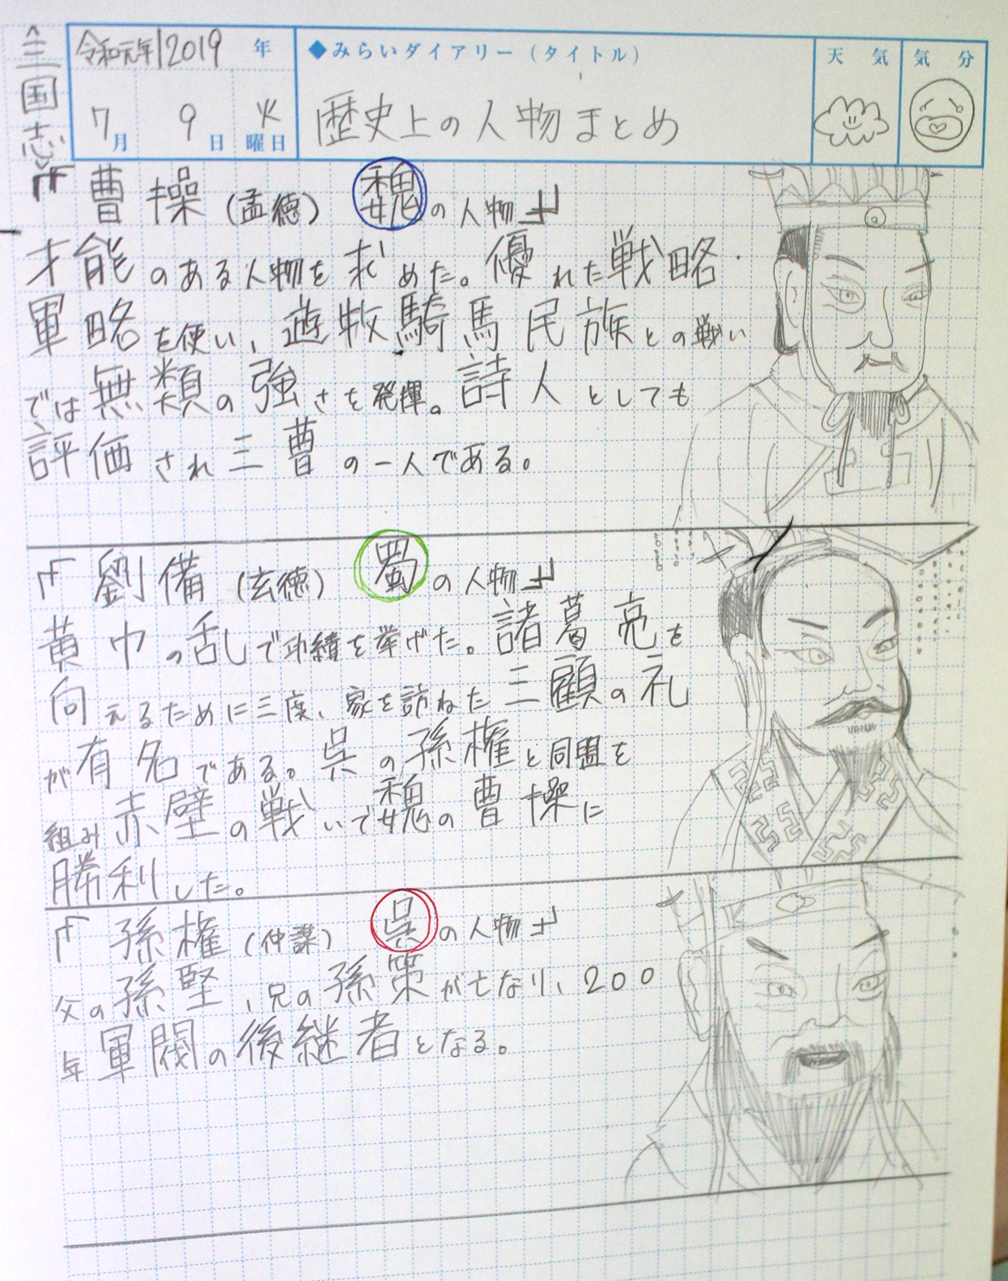 〈三国志〉
令和元年 2019 年
7月 9日 火曜日
◆みらいダイアリー（タイトル）
歴史上の人物まとめ
天気
気分
『曹操（孟徳） 魏の人物』
才能のある人物を求めた。優れた戦略・
軍略を使い、遊牧騎馬民族との戦い
では無類の強さを発揮。詩人としても
評価され三曹の一人である。
『劉備（玄徳） 蜀の人物』
黄巾の乱で功績を挙げた。諸葛亮を
向えるために三度、家を訪ねた三顧の礼
が有名である。呉の孫権と同盟を
組み赤壁の戦いで魏の曹操に
勝利した。
『孫権（仲謀） 呉の人物』
父の孫堅、兄の孫策が亡なり、200
年軍閥の後継者となる。